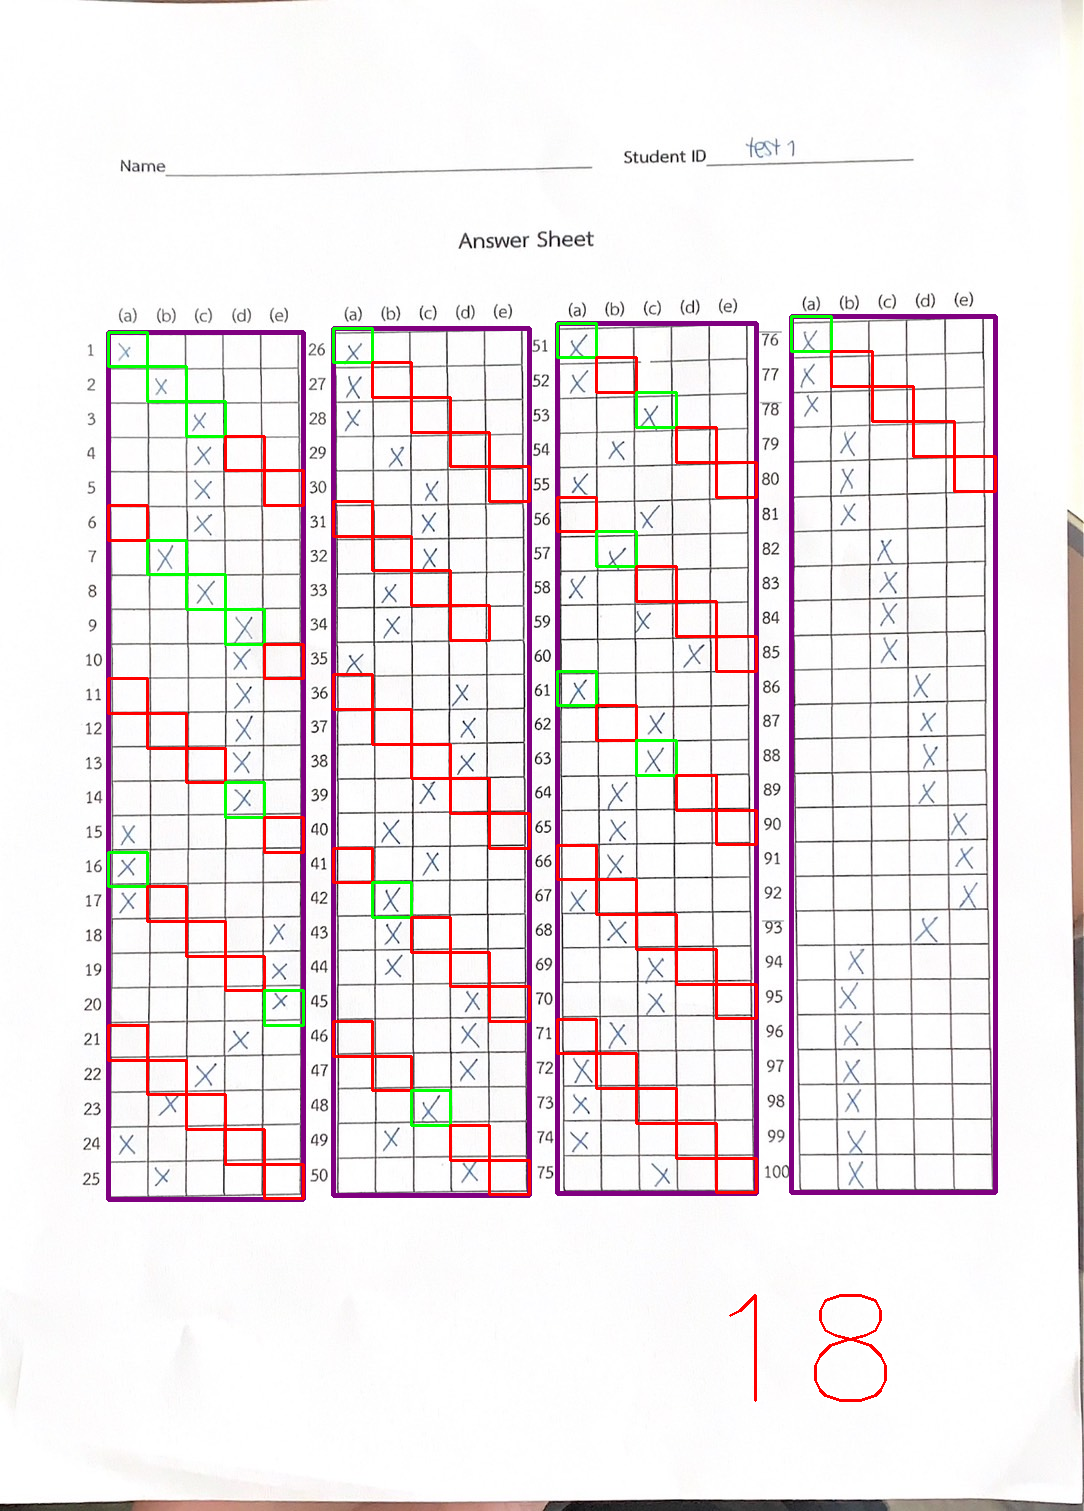 Name Student ID test 1
Answer Sheet
(a) (b) (c) (d) (e)
1 X
2 X
3 X
4 X
5 X
6 X
7 X
8 X
9 X
10 X
11 X
12 X
13 X
14 X
15 X
16 X
17 X
18 X
19 X
20 X
21 X
22 X
23 X
24 X
25 X
(a) (b) (c) (d) (e)
26 X
27 X
28 X
29 X
30 X
31 X
32 X
33 X
34 X
35 X
36 X
37 X
38 X
39 X
40 X
41 X
42 X
43 X
44 X
45 X
46 X
47 X
48 X
49 X
50 X
(a) (b) (c) (d) (e)
51 X
52 X
53 X
54 X
55 X
56 X
57 X
58 X
59 X
60 X
61 X
62 X
63 X
64 X
65 X
66 X
67 X
68 X
69 X
70 X
71 X
72 X
73 X
74 X
75 X
(a) (b) (c) (d) (e)
76 X
77 X
78 X
79 X
80 X
81 X
82 X
83 X
84 X
85 X
86 X
87 X
88 X
89 X
90 X
91 X
92 X
93 X
94 X
95 X
96 X
97 X
98 X
99 X
100 X
18